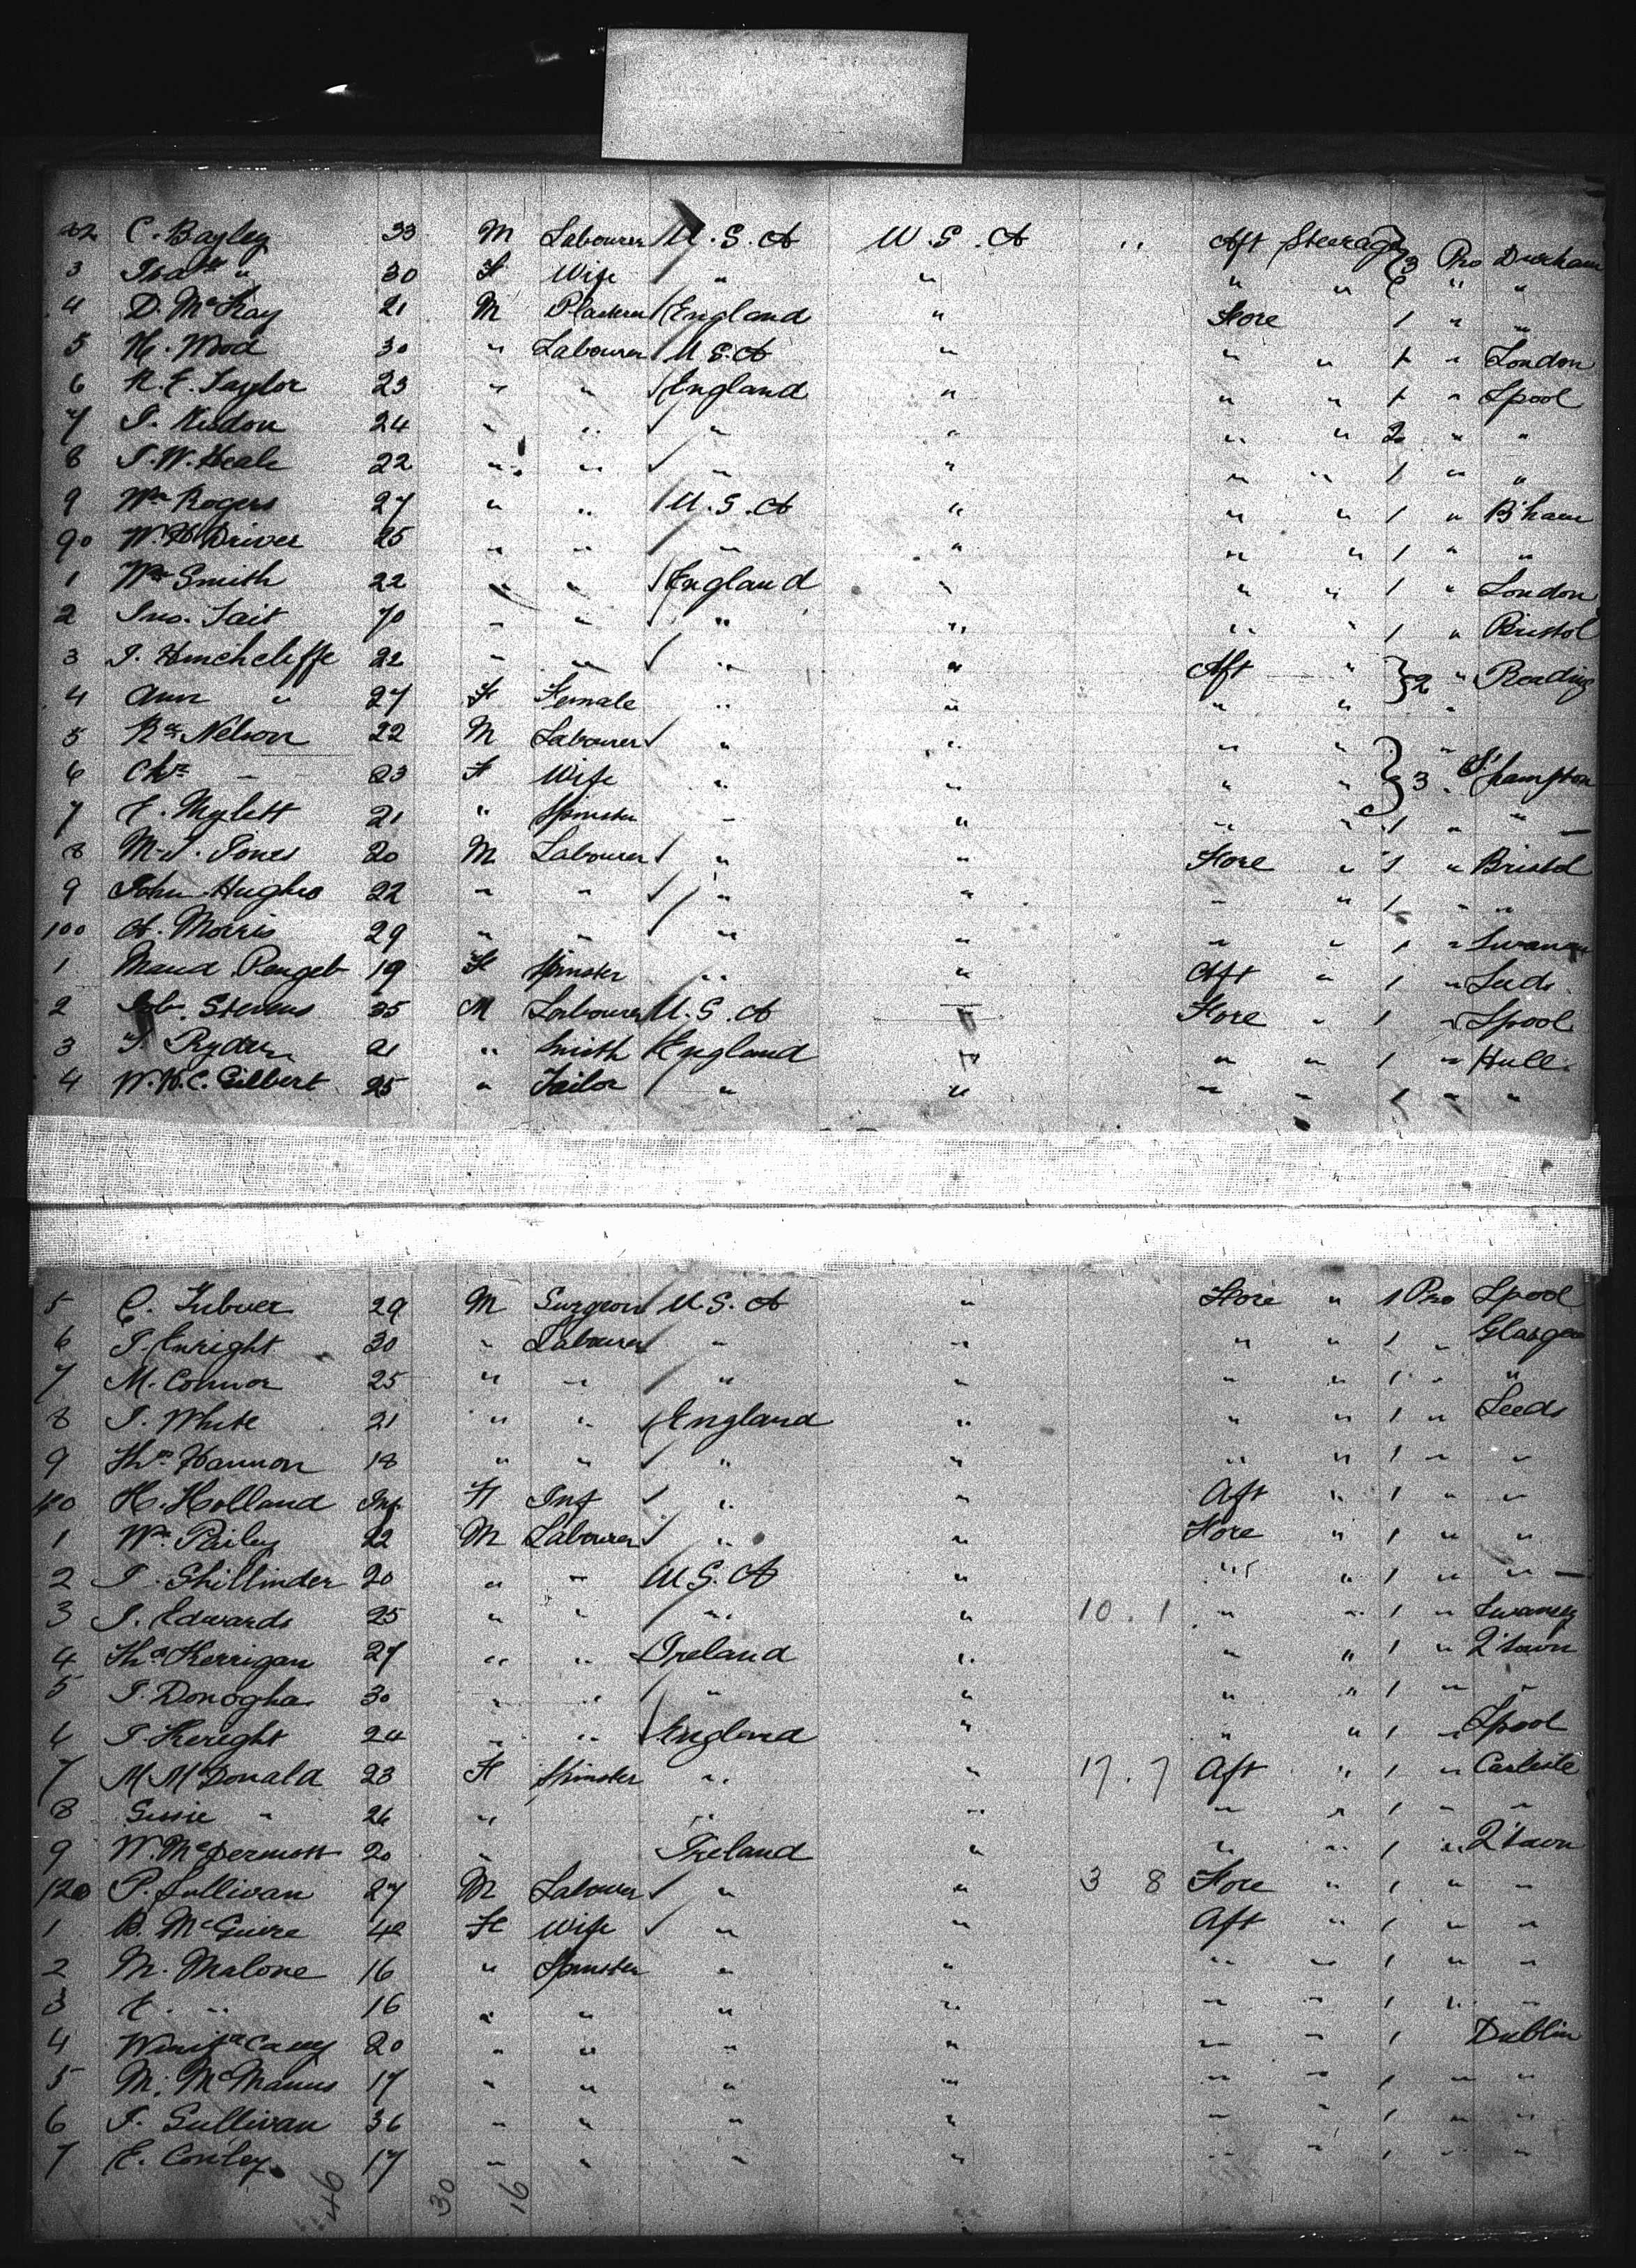 82 C. Bayley 33 M Labourer U.S.A U.S.A " Aft Steerage 3 Pro Durham
3 Isab " 30 F Wife " " " " " "
4 D. McKay 21 M England " Fore 1 " "
5 H. Wood 30 " Labourer U.S.A " " " 1 " London
6 R. E. Taylor 23 " " England " " " 1 " Lpool
7 24 " " " " " " 2 " "
8 J. W. Heale 22 " " " " " " 1 " "
9 Wm Rogers 27 " " U.S.A " " " 1 " B'ham
90 W. H. Driver 25 " " " " " " 1 " "
1 Wm Smith 22 " " England " " " 1 " London
2 Jno. Tait 70 " " " " " " 1 " Bristol
3 J. Hinchcliffe 22 " " " " Aft " 2 " Reading
4 Ann " 27 F Female " " " " "
5 Nelson 22 M Labourer " " " " "
6 23 F Wife " " " " 3 " S'hampton
7 E. Mylett 21 " Spinster " " " " 1 " "
8 M. J. Jones 20 M Labourer " " Fore " 1 " Bristol
9 John Hughes 22 " " " " " " 1 " "
100 A. Morris 29 " " " " " " 1 " Swansea
1 Maud 19 F Spinster " " Aft " 1 " Leeds
2 Stevens 35 M Labourer U.S.A " Fore " 1 " Lpool
3 21 " Smith England " " " 1 " Hull
4 W. H. C. Gilbert 25 " Tailor " " " " 1 " "
5 29 M Surgeon U.S.A " Fore " 1 Pro Lpool
6 J. Enright 30 " Labourer " " " " 1 " Glasgow
7 M. Connor 25 " " " " " " 1 " "
8 J. White 21 " " England " " " 1 " Leeds
9 Thos Hannon 18 " " " " " " 1 " "
110 H. Holland Inf F Inf " " Aft " 1 " "
1 Wm 22 M Labourer " " Fore " 1 " "
2 J. Shillinder 20 " " U.S.A " " " 1 " "
3 J. Edwards 25 " " " " 10.1 " " 1 " Swansea
4 Thos Kerrigan 27 " " Ireland " " " 1 " Q'town
5 J. Donogha 30 " " " " " " 1 " "
6 24 " " England " " " 1 " Lpool
7 M McDonald 23 F Spinster " " 17.7 Aft " 1 " Carlisle
8 " 26 " " " " " 1 " "
9 W. McDermott 20 " Ireland " " " 1 " Q'town
120 P. Sullivan 27 M Labourer " " 3 8 Fore " 1 " "
1 B. McGuire 42 F Wife " " Aft " 1 " "
2 M. Malone 16 " Spinster " " " " 1 " "
3 E. " 16 " " " " " " 1 " "
4 Casey 20 " " " " " " 1 Dublin
5 M. McManus 17 " " " " " " 1 " "
6 J. Sullivan 36 " " " " " " 1 " "
7 E. Conley 17 " " " " " " 1 " "
46 30 16